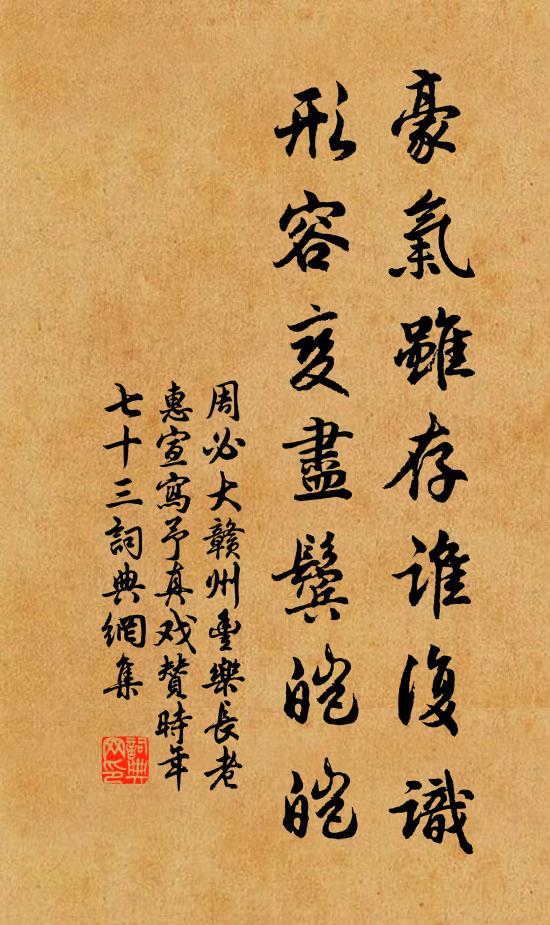 豪氣雖存誰復識
形容变盡鬓皑皑
周必大赣州豊樂長老
惠宣寫予真戏赞時年
七十三詞典網集
詞典网印